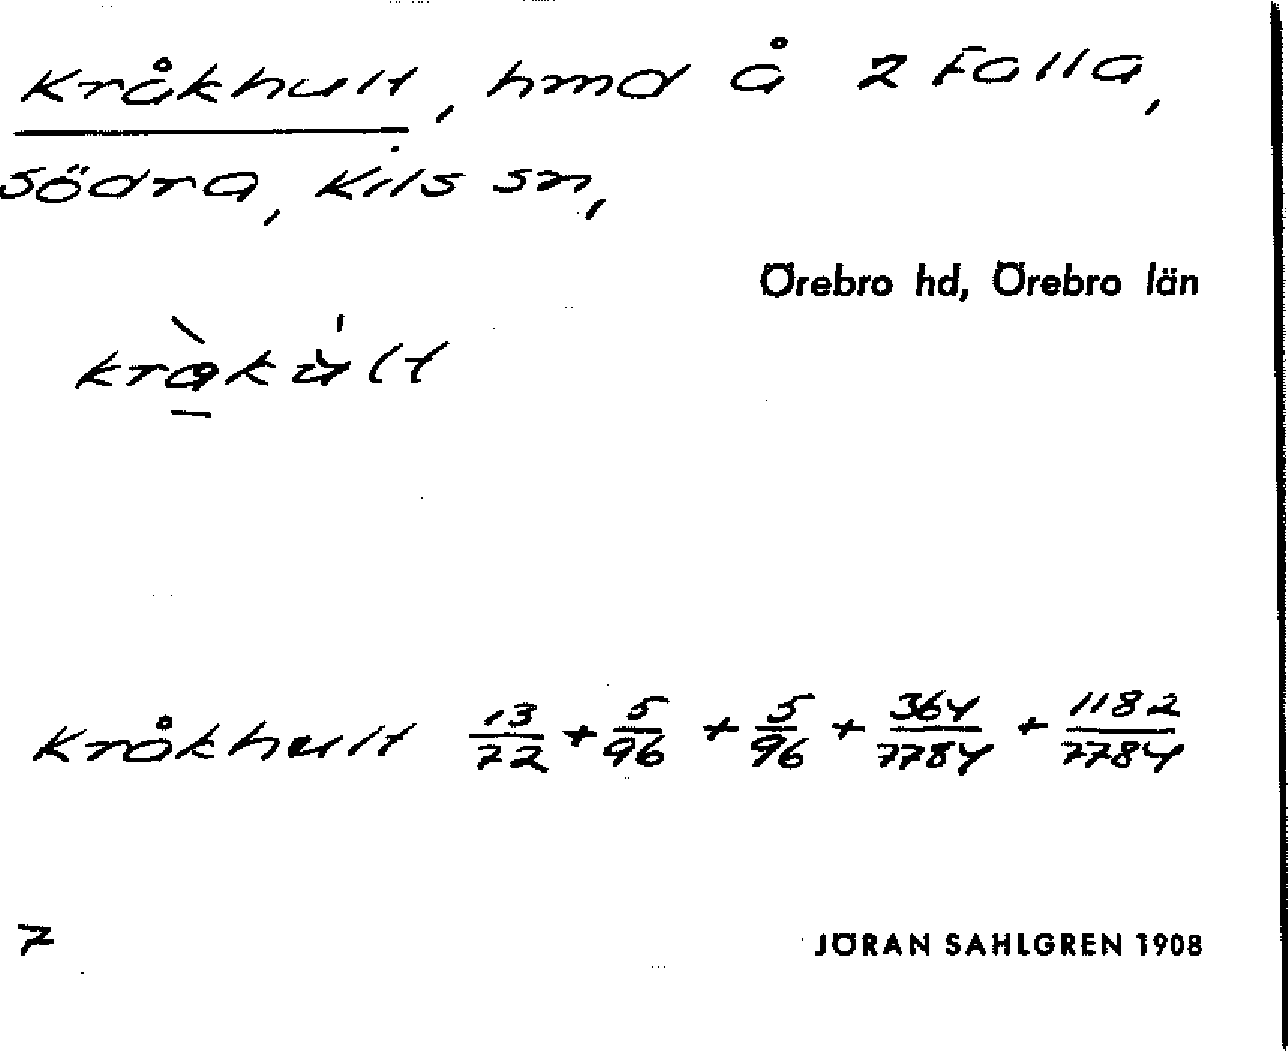 Kråkhult, hmd å 2 Falla,
Södra, Kils sn,
Örebro hd, Örebro län
kràkú̀lt
Kråkhult 13/72 + 5/96 + 5/96 + 364/7784 + 1182/7784
7
JÖRAN SAHLGREN 1908